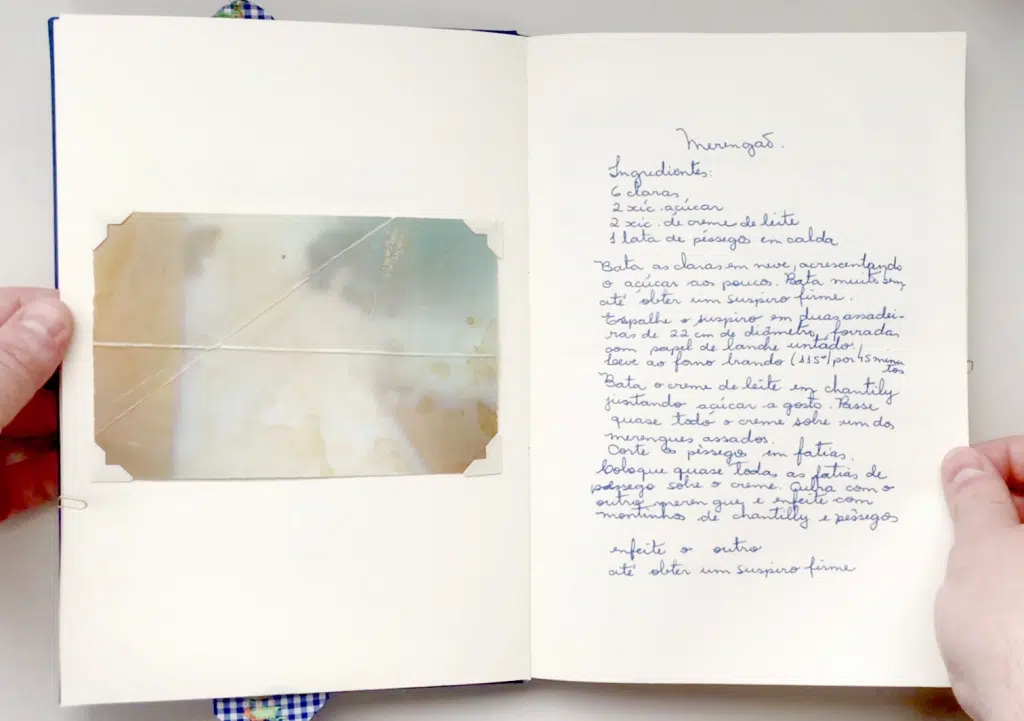 Merengão.
Ingredientes:
6 claras
2 xíc. açúcar
2 xíc. de creme de leite
1 lata de pêssegos em calda
Bata as claras em neve, acrescentando
o açúcar aos poucos. Bata muito bem
até obter um suspiro firme.
Espalhe o suspiro em duas assadei-
ras de 22 cm de diâmetro, forradas
com papel de lanche untado.
Leve ao forno brando (115º) por 45 minu
tos
Bata o creme de leite em chantily
juntando açúcar a gosto. Passe
quase todo o creme sobre um dos
merengues assados.
Corte os pêssegos em fatias.
Coloque quase todas as fatias de
pêssego sobre o creme. Cubra com o
outro merengue e enfeite com
montinhos de chantilly e pêssegos
enfeite o outro
até obter um suspiro firme